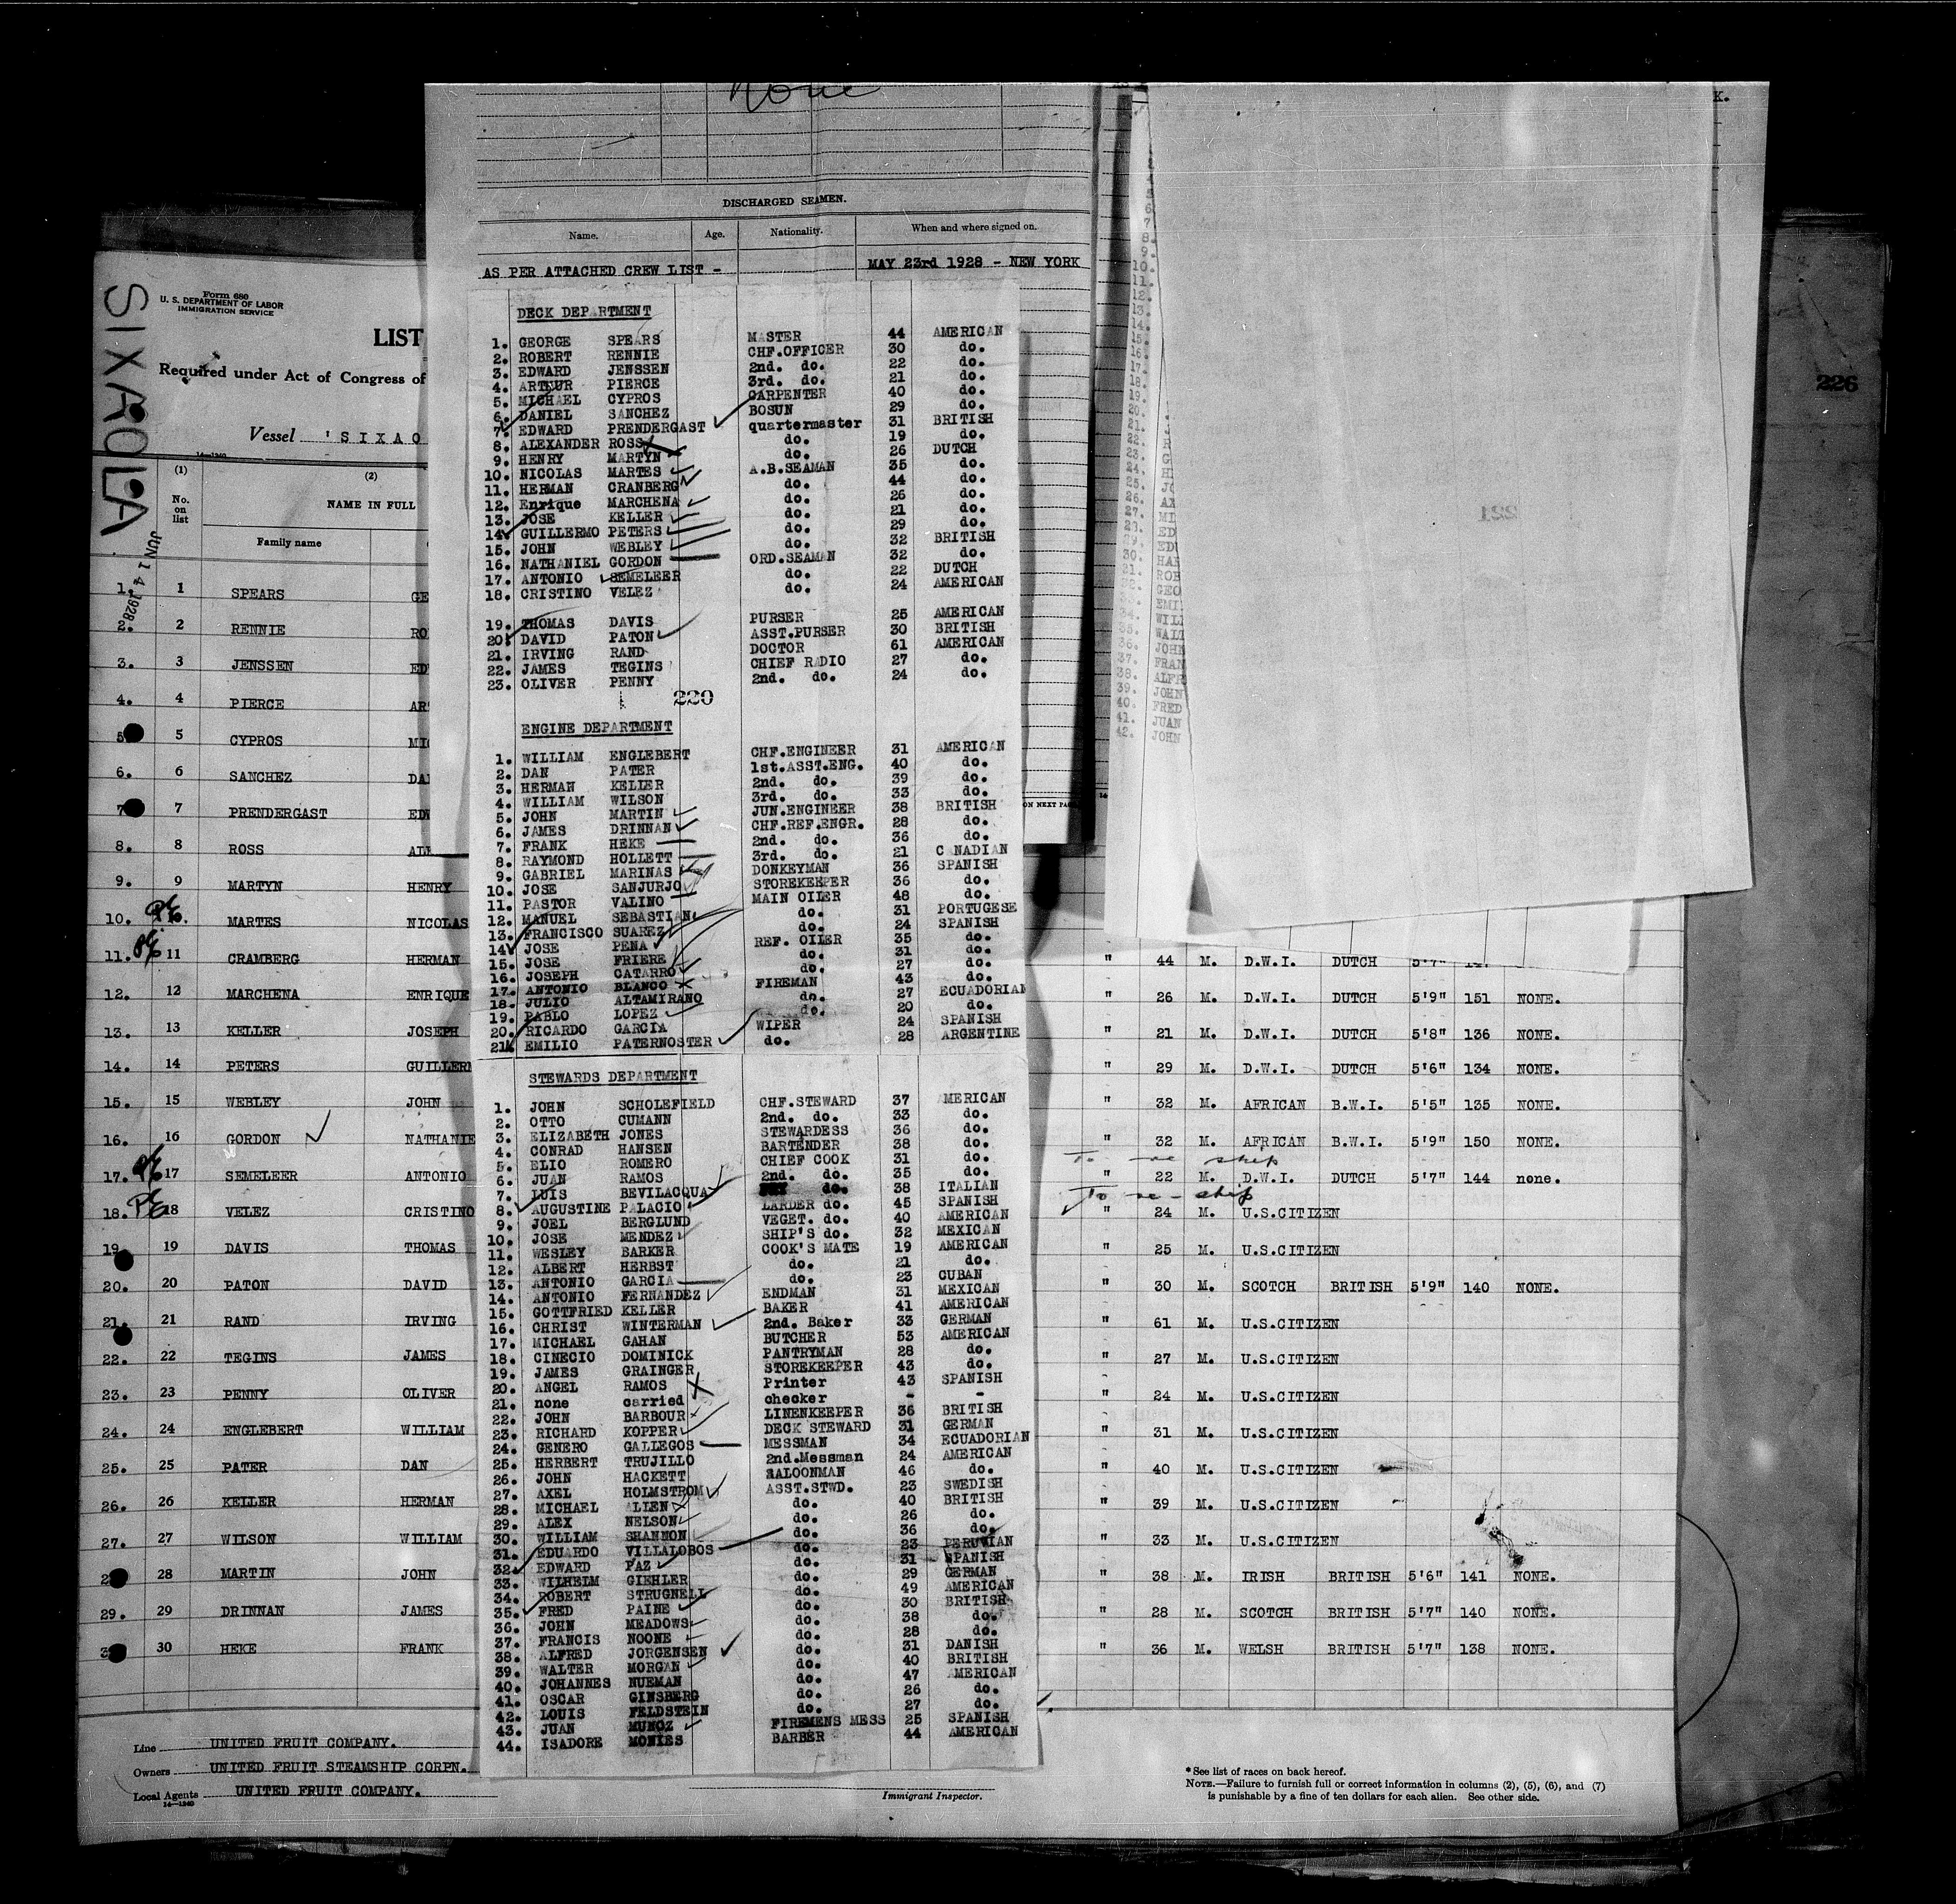 None
DISCHARGED SEAMEN.
Name. Age. Nationality. When and where signed on.
AS PER ATTACHED CREW LIST - MAY 23rd 1928 - NEW YORK
DECK DEPARTMENT
1. GEORGE SPEARS MASTER 44 AMERICAN
2. ROBERT RENNIE CHF.OFFICER 30 do.
3. EDWARD JENSSEN 2nd. do. 22 do.
4. ARTHUR PIERCE 3rd. do. 21 do.
5. MICHAEL CYPROS CARPENTER 40 do.
6. DANIEL SANCHEZ BOSUN 29 do.
7. EDWARD PRENDERGAST quartermaster 31 BRITISH
8. ALEXANDER ROSS do. 19 do.
9. HENRY MARTYN do. 26 DUTCH
10. NICOLAS MARTES A.B.SEAMAN 35 do.
11. HERMAN CRANBERG do. 44 do.
12. Enrique MARCHENA do. 26 do.
13. JOSE KELLER do. 21 do.
14. GUILLERMO PETERS do. 29 do.
15. JOHN WEBLEY do. 32 BRITISH
16. NATHANIEL GORDON ORD.SEAMAN 32 do.
17. ANTONIO SEMELEER do. 22 DUTCH
18. CRISTINO VELEZ do. 24 AMERICAN
19. THOMAS DAVIS PURSER 25 AMERICAN
20. DAVID PATON ASST.PURSER 30 BRITISH
21. IRVING RAND DOCTOR 61 AMERICAN
22. JAMES TEGINS CHIEF RADIO 27 do.
23. OLIVER PENNY 2nd. do. 24 do.
220
ENGINE DEPARTMENT
1. WILLIAM ENGLEBERT CHF.ENGINEER 31 AMERICAN
2. DAN PATER 1st.ASST.ENG. 40 do.
3. HERMAN KELLER 2nd. do. 39 do.
4. WILLIAM WILSON 3rd. do. 33 do.
5. JOHN MARTIN JUN.ENGINEER 38 BRITISH
6. JAMES DRINNAN CHF.REF.ENGR. 28 do.
7. FRANK HEKE 2nd. do. 36 do.
8. RAYMOND HOLLETT 3rd. do. 21 CANADIAN
9. GABRIEL MARINAS DONKEYMAN 36 SPANISH
10. JOSE SANJURJO STOREKEEPER 36 do.
11. PASTOR VALINO MAIN OILER 48 do.
12. MANUEL SEBASTIAN do. 31 PORTUGESE
13. FRANCISCO SUAREZ do. 24 SPANISH
14. JOSE PENA REF. OILER 35 do.
15. JOSE FRIERE do. 31 do.
16. JOSEPH CATARRO do. 27 do.
17. ANTONIO BLANCO FIREMAN 43 do.
18. JULIO ALTAMIRANO do. 27 ECUADORIAN
19. PABLO LOPEZ do. 20 do.
20. RICARDO GARCIA WIPER 24 SPANISH
21. EMILIO PATERNOSTER do. 28 ARGENTINE
STEWARDS DEPARTMENT
1. JOHN SCHOLEFIELD CHF.STEWARD 37 AMERICAN
2. OTTO CUMANN 2nd. do. 33 do.
3. ELIZABETH JONES STEWARDESS 36 do.
4. CONRAD HANSEN BARTENDER 38 do.
5. ELIO ROMERO CHIEF COOK 31 do.
6. JUAN RAMOS 2nd. do. 35 do.
7. LUIS BEVILACQUA do. 38 ITALIAN
8. AUGUSTINE PALACIO LARDER do. 45 SPANISH
9. JOEL BERGLUND VEGET. do. 40 AMERICAN
10. JOSE MENDEZ SHIP'S do. 32 MEXICAN
11. WESLEY BARKER COOK'S MATE 19 AMERICAN
12. ALBERT HERBST do. 21 do.
13. ANTONIO GARCIA do. 23 CUBAN
14. ANTONIO FERNANDEZ ENDMAN 31 MEXICAN
15. GOTTFRIED KELLER BAKER 41 AMERICAN
16. CHRIST WINTERMAN 2nd. Baker 33 GERMAN
17. MICHAEL GAHAN BUTCHER 53 AMERICAN
18. CINECIO DOMINICK PANTRYMAN 28 do.
19. JAMES GRAINGER STOREKEEPER 43 do.
20. ANGEL RAMOS Printer 43 SPANISH
21. none carried checker - -
22. JOHN BARBOUR LINENKEEPER 36 BRITISH
23. RICHARD KOPPER DECK STEWARD 31 GERMAN
24. GENERO GALLEGOS MESSMAN 34 ECUADORIAN
25. HERBERT TRUJILLO 2nd.Messman 24 AMERICAN
26. JOHN HACKETT SALOONMAN 46 do.
27. AXEL HOLMSTROM ASST.STWD. 23 SWEDISH
28. MICHAEL ALLEN do. 40 BRITISH
29. ALEX NELSON do. 26 do.
30. WILLIAM SHANNON do. 36 do.
31. EDUARDO VILLALOBOS do. 23 PERUVIAN
32. EDWARD PAZ do. 31 SPANISH
33. WILHELM GIEHLER do. 29 GERMAN
34. ROBERT STRUGNELL do. 49 AMERICAN
35. FRED PAINE do. 30 BRITISH
36. JOHN MEADOWS do. 38 do.
37. FRANCIS NOONE do. 28 do.
38. ALFRED JORGENSEN do. 31 DANISH
39. WALTER MORGAN do. 40 BRITISH
40. JOHANNES NUEMAN do. 47 AMERICAN
41. OSCAR GINSBERG do. 26 do.
42. LOUIS FELDSTEIN do. 27 do.
43. JUAN MUNOZ FIREMENS MESS 25 SPANISH
44. ISADORE MONIES BARBER 44 AMERICAN
SIXAOLA
JUN 14 1928
Form 680
U. S. DEPARTMENT OF LABOR
IMMIGRATION SERVICE
LIST
Required under Act of Congress of
Vessel 'SIXAO
14-1240
(1) (2)
No. on list NAME IN FULL
Family name
1. 1 SPEARS GE
2. 2 RENNIE RO
3. 3 JENSSEN ED
4. 4 PIERCE AR
5 5 CYPROS MI
6. 6 SANCHEZ DA
7 7 PRENDERGAST ED
8. 8 ROSS ALE
9. 9 MARTYN HENRY
10. MARTES NICOLAS
11. 11 CRAMBERG HERMAN " 44 M. D.W.I. DUTCH 5'7"
12. 12 MARCHENA ENRIQUE " 26 M. D.W.I. DUTCH 5'9" 151 NONE.
13. 13 KELLER JOSEPH " 21 M. D.W.I. DUTCH 5'8" 136 NONE.
14. 14 PETERS GUILLERM " 29 M. D.W.I. DUTCH 5'6" 134 NONE.
15. 15 WEBLEY JOHN " 32 M. AFRICAN B.W.I. 5'5" 135 NONE.
16. 16 GORDON NATHANIE " 32 M. AFRICAN B.W.I. 5'9" 150 NONE.
To re ship
17. 17 SEMELEER ANTONIO " 22 M. D.W.I. DUTCH 5'7" 144 none.
To re-ship
18. 18 VELEZ CRISTINO " 24 M. U.S.CITIZEN
19 19 DAVIS THOMAS " 25 M. U.S.CITIZEN
20. 20 PATON DAVID " 30 M. SCOTCH BRITISH 5'9" 140 NONE.
21. 21 RAND IRVING " 61 M. U.S.CITIZEN
22. 22 TEGINS JAMES " 27 M. U.S.CITIZEN
23. 23 PENNY OLIVER " 24 M. U.S.CITIZEN
24. 24 ENGLEBERT WILLIAM " 31 M. U.S.CITIZEN
25. 25 PATER DAN " 40 M. U.S.CITIZEN
26. 26 KELLER HERMAN " 39 M. U.S.CITIZEN
27. 27 WILSON WILLIAM " 33 M. U.S.CITIZEN
28 MARTIN JOHN " 38 M. IRISH BRITISH 5'6" 141 NONE.
29. 29 DRINNAN JAMES " 28 M. SCOTCH BRITISH 5'7" 140 NONE.
30 HEKE FRANK " 36 M. WELSH BRITISH 5'7" 138 NONE.
Line UNITED FRUIT COMPANY.
Owners UNITED FRUIT STEAMSHIP CORPN.
Local Agents UNITED FRUIT COMPANY.
14-1240
Immigrant Inspector.
* See list of races on back hereof.
NOTE.—Failure to furnish full or correct information in columns (2), (5), (6), and (7)
is punishable by a fine of ten dollars for each alien. See other side.
K.
5
6
7.
8.
9.
10.
11.
12.
13.
14.
15.
16.
17.
18.
19.
20.
21. J
22. R
23. G
24. H
25. JO
26. AX
27. MI
28. ED
29. ED
30. HAR
31. ROB
32. GEO
33. EMI
34. WILL
35. WALT
36. JOHN
37. FRAN
38. ALFR
39. JOHN
40. FRED
41. JUAN
42. JOHN
ON NEXT PA
221
226